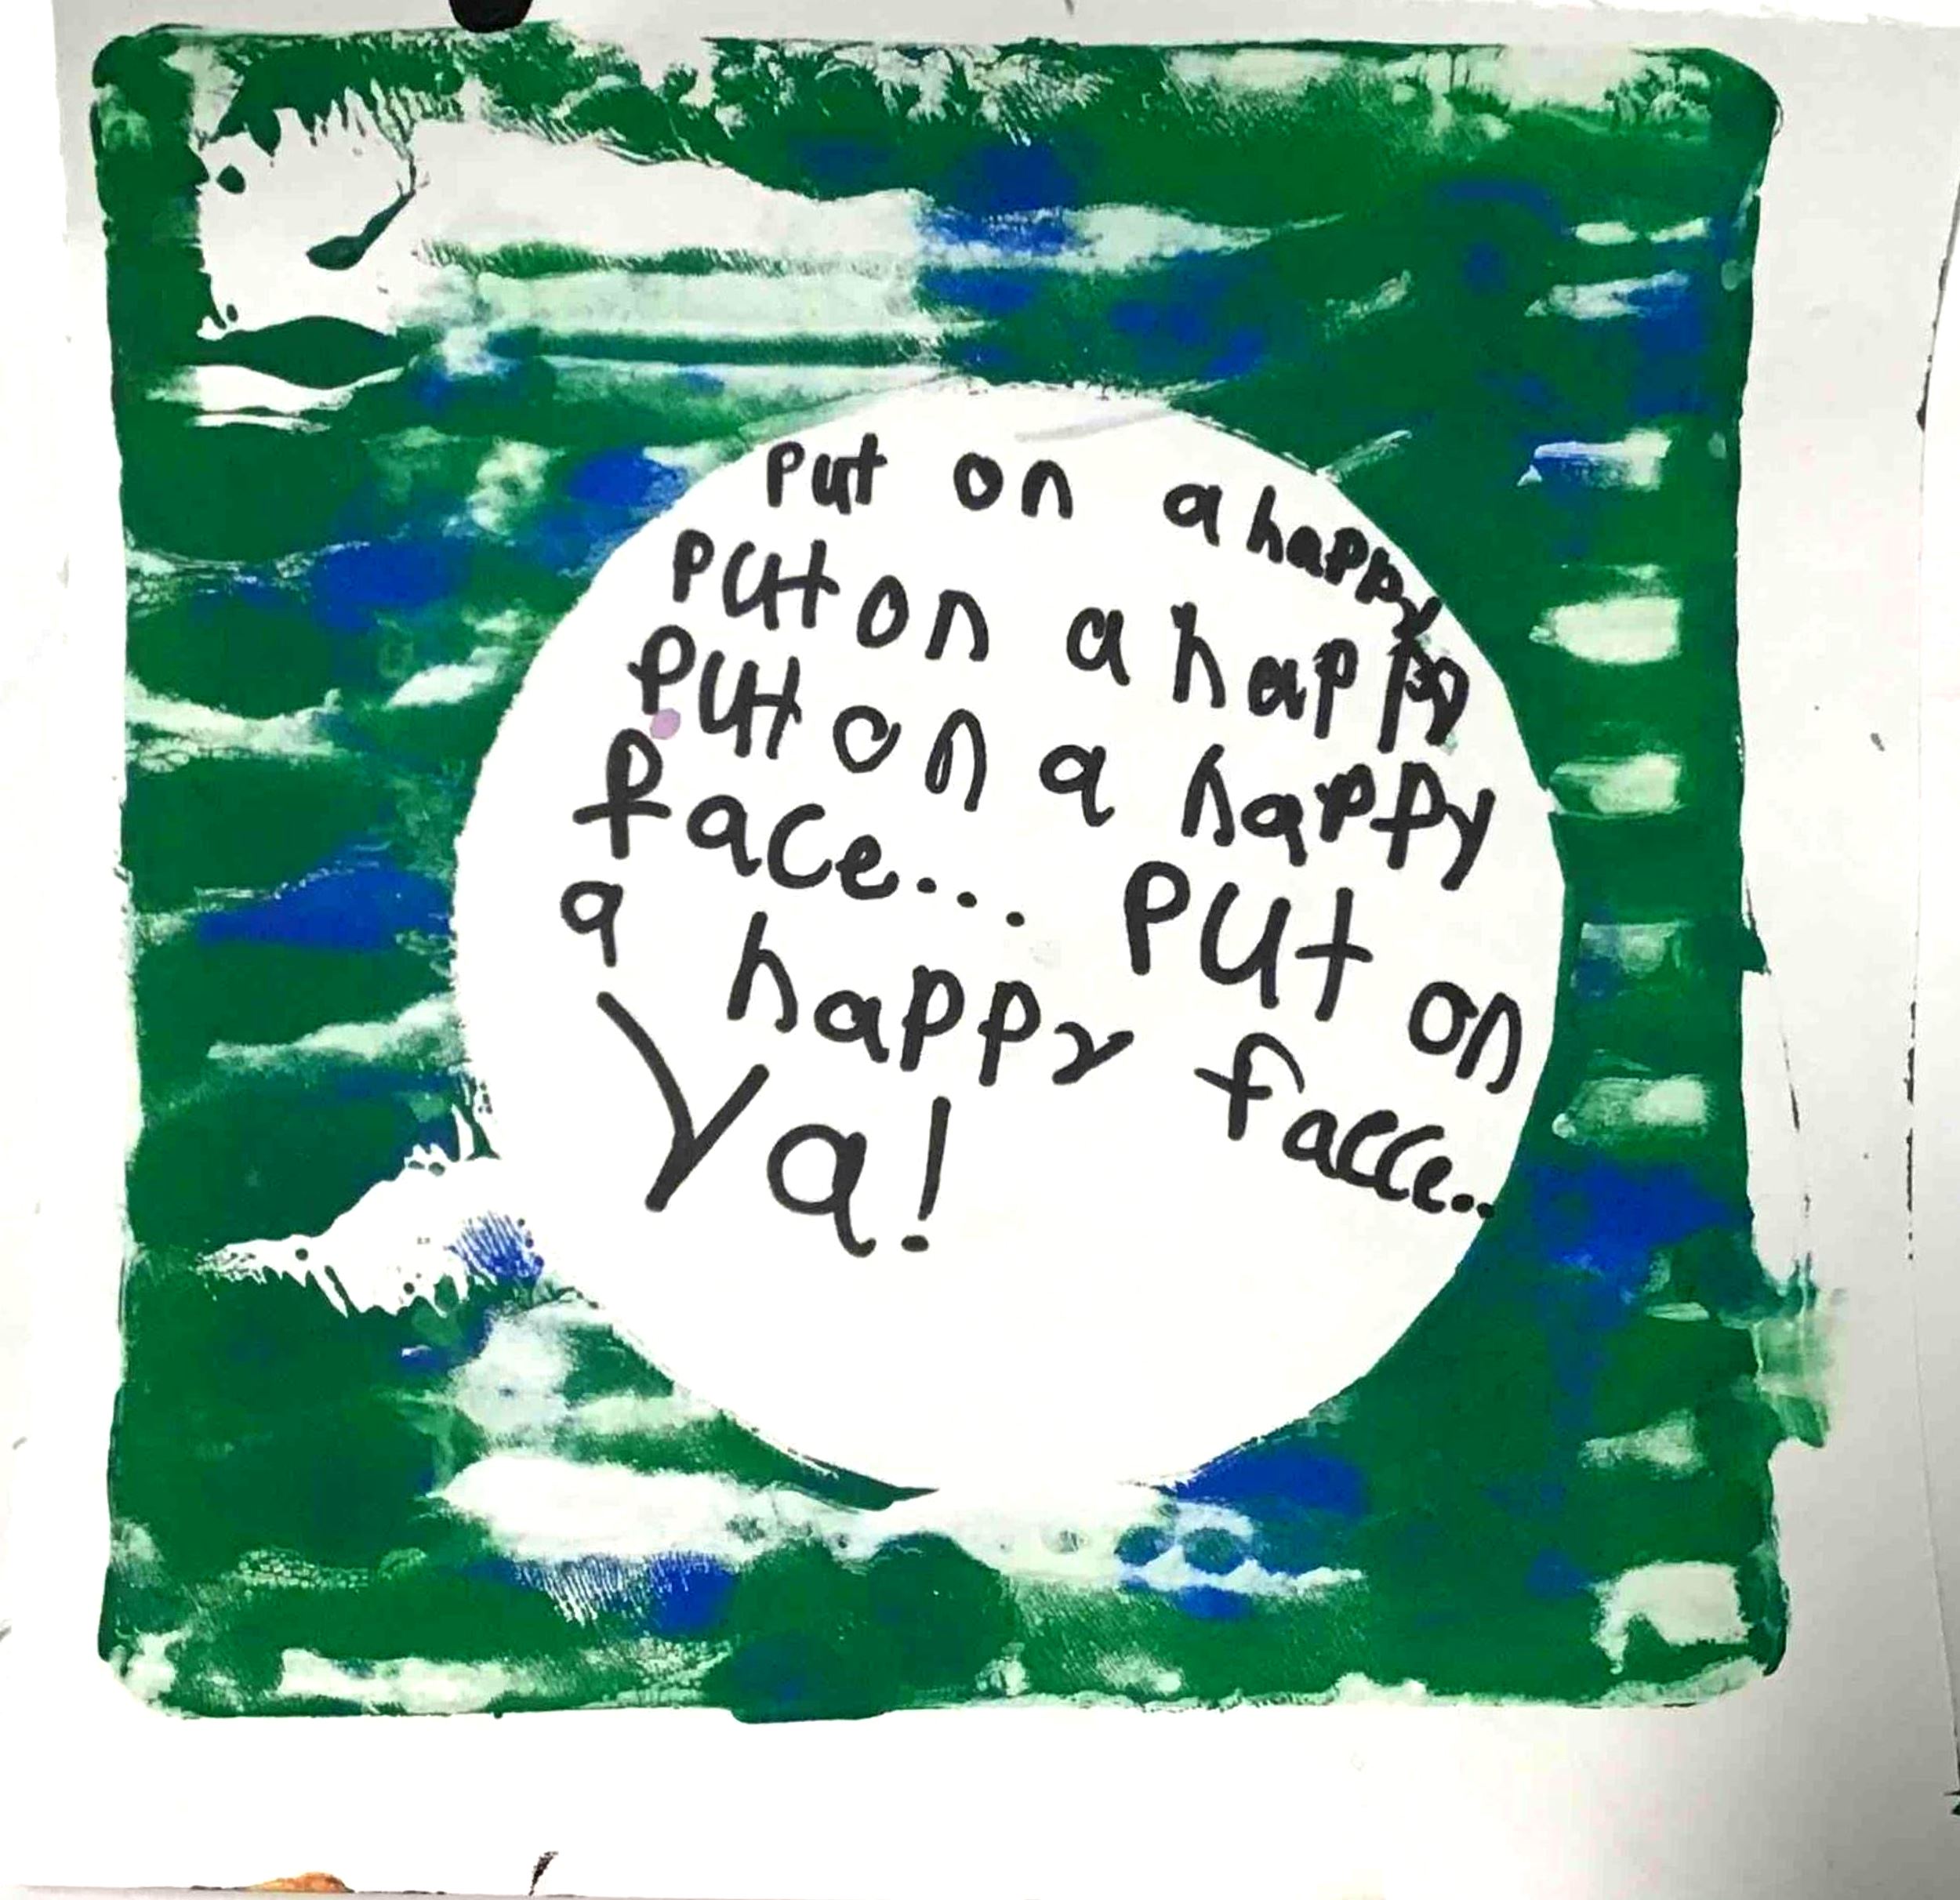 put on a happy
put on a happy
put on a happy
face... put on
a happy facce..
Ya!